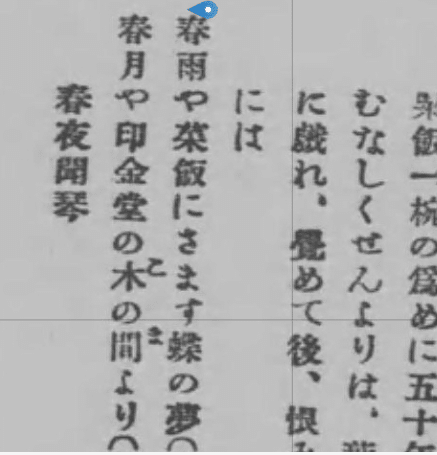 飯一椀の為めに五十年
むなしくせんよりは、
に戯れ、覺めて後、恨み
には
春雨や菜飯にさます蝶の夢（
春月や印金堂の木の間より（
こ
ま
春夜聞琴